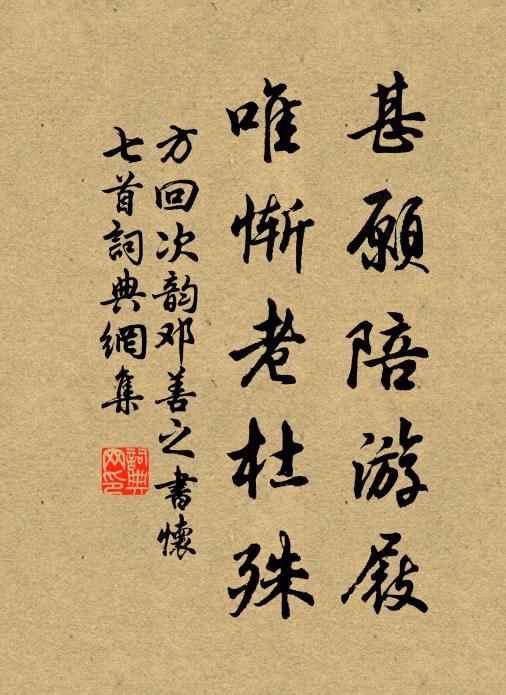 甚愿陪游屐
唯惭老杜殊
方回次韵邓善之書懷
七首詞典網集
詞典网印